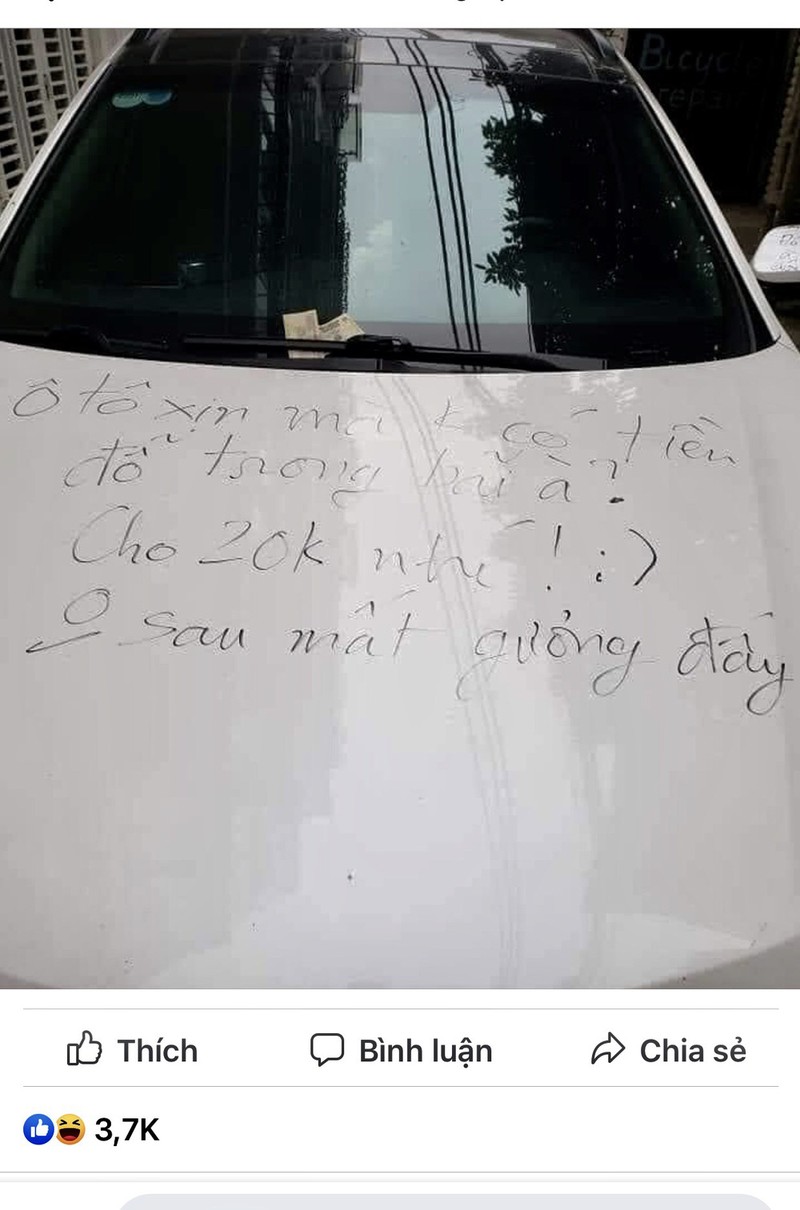 Bicycle
repa
Ô tô xịn mà k có tiền
đỗ trong bãi à?
Cho 20k nhé! :)
O sau mất gương đấy
Thích
Bình luận
Chia sẻ
3,7K